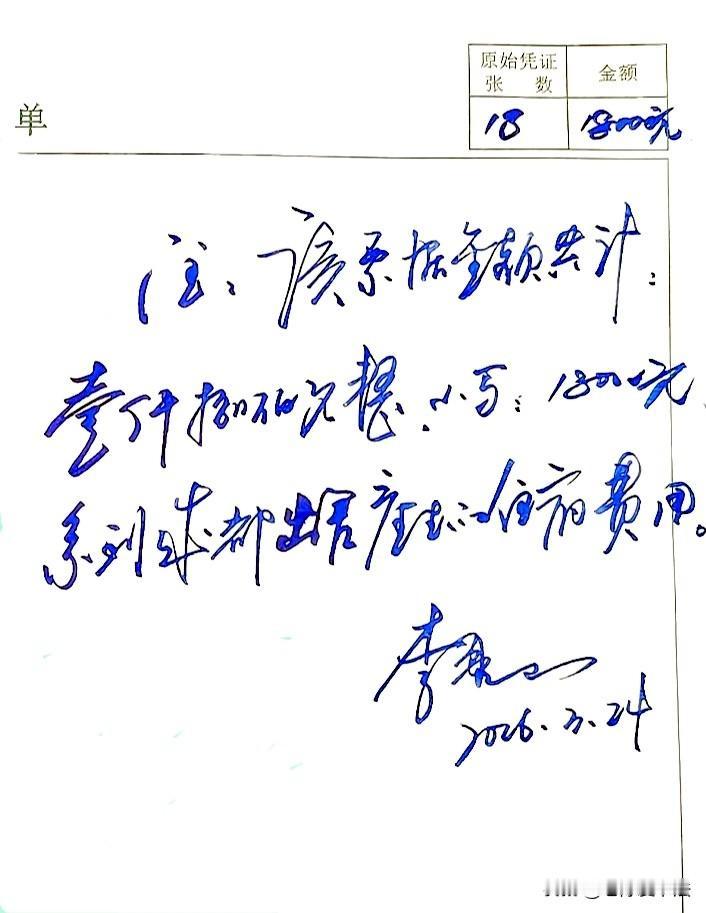 原始凭证
张 数
金额
单
18
1800元
注：该票据金额共计：
壹仟捌佰元整，小写：1800元
系到成都出差产生的住宿费用。
李
2026.3.24